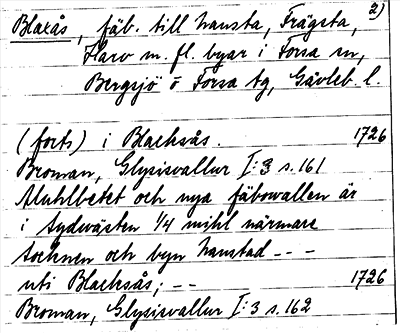 2)
Blaxås, fäb. till Hansta, Frägsta,
Harv m. fl. byar i Forsa sn,
Bergsjö o Forsa tg, Gävleb. l.
(forts) i Blacksås. 1726
Broman, Glysisvallur I:3 s. 161
Muhlbetet och nya fäbowallen är
i sydwästen 1/4 mihl närmare
socknen och byn hanstad - - -
uti Blacksås; - - 1726
Broman, Glysisvallur I:3 s. 162